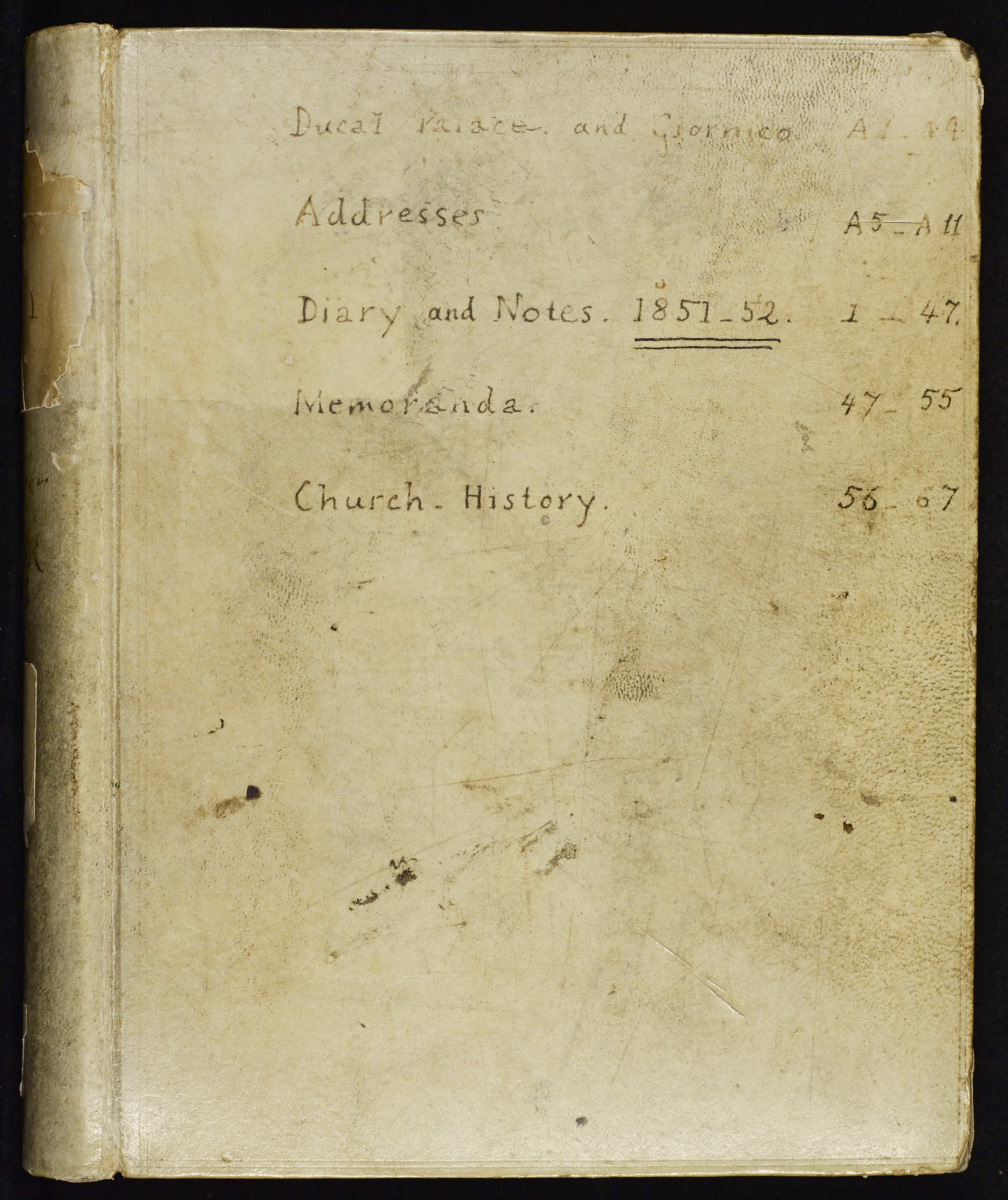 Ducal Palace. and Giornico. A1 - A9
Addresses A5 - A11
Diary and Notes. 1851-52. 1 - 47.
Memoranda. 47 - 55
Church - History. 56 - 67